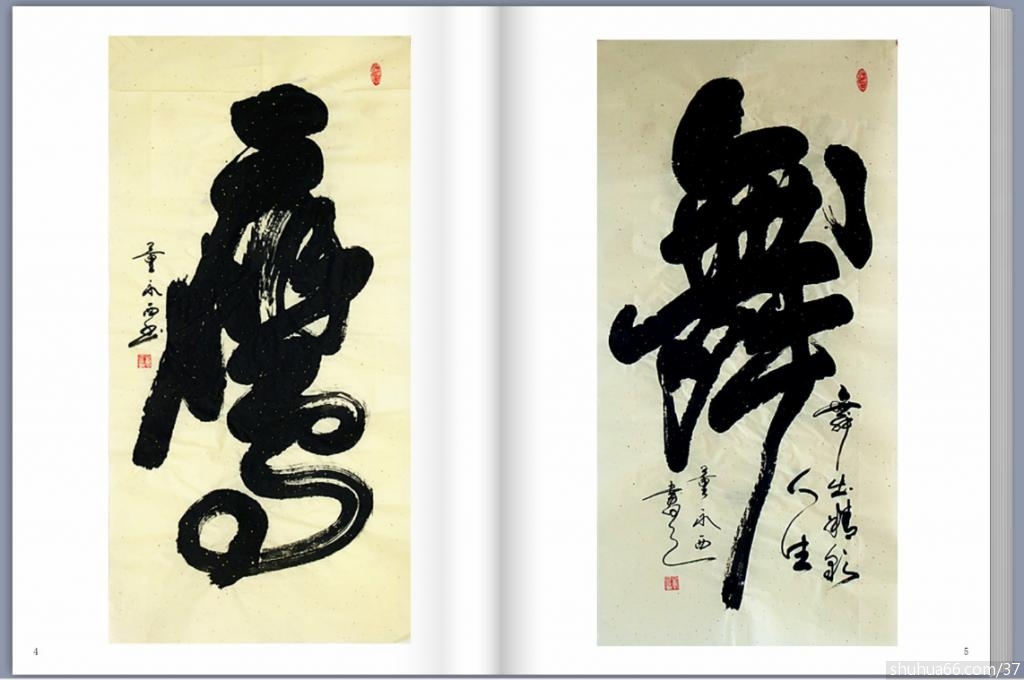 鹰
董永西书
4
舞
舞出精彩
人生
董永西
書之
5
shuhua66.com/37